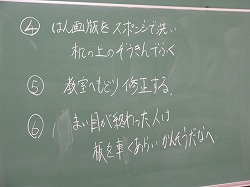 ④ はん画版をスポンジで洗い
机の上のぞうきんでふく
⑤ 教室へもどり修正する。
⑥ まい目が終わった人は
板を軽くあらいかんそうだなへ